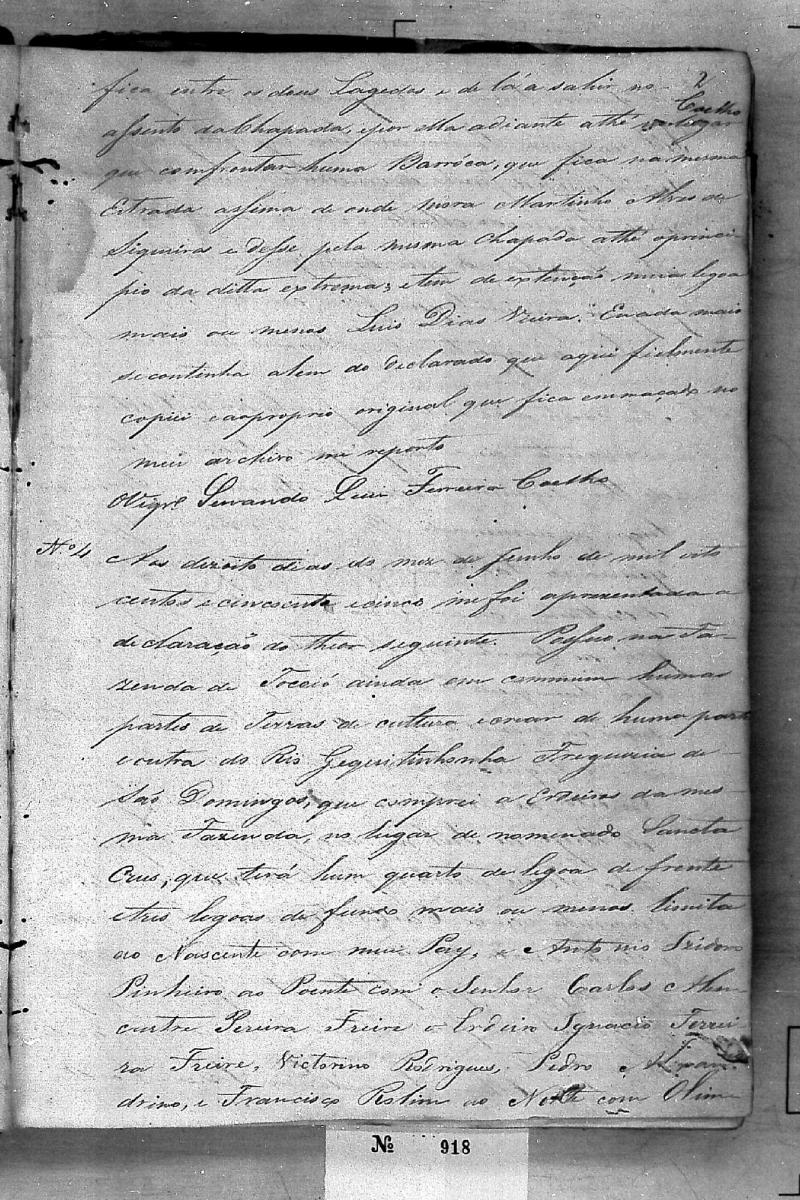 2
Coelho
fica entre os dous Lagedos e de lá a sahir no
assento da Chapada, e por ella adiante athé o lugar
que comfrontar huma Barróca, que fica na mesma
Estrada assima de onde mora Martinho Alves de
Siqueira e desse pela mesma Chapada athé o princi
pio da ditta extrema; e tem de extenção meia legoa
mais ou menos Luis Dias Vieira. E nada mais
se continha alem do declarado que aqui fielmente
copiei e ao proprio original que fica emmaçado no
meu archivo me reporto
O Vigrº Servando Luis Ferreira Coelho
Nº 4 Aos dezoito dias do mez de Junho de mil oito
centos e cincoenta e cinco me foi aprezentada a
declaração do theor seguinte. Possuo na Fa-
zenda de Tocoió ainda em commum humas
partes de Terras de cultura e crear de huma parte
e outra do Rio Gequitinhonha Freguezia de
São Domingos, que comprei a Erdeiros da mes
ma Fazenda, no lugar de nominado Sancta
Crus, que terá hum quarto de legoa de frente
e tres legoas de fundo mais ou menos. Limita
ao Nascente com meu Pay, e Antonio Izidoro
Pinheiro ao Poente com o Senhor Carlos Alen
castre Pereira Freire o Erdeiro Ignacio Ferrei
ra Freire, Victorino Rodrigues, Pedro Alixan
drino, e Francisco Rolim ao Norte com Olim
Nº 918